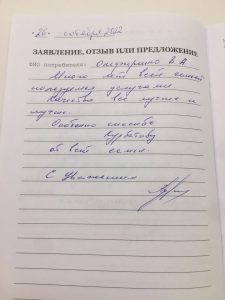 «26» октября 2022
ЗАЯВЛЕНИЕ, ОТЗЫВ ИЛИ ПРЕДЛОЖЕНИЕ
ФИО потребителя: В.А
Много лет всей семьей
пользуемся услугами.
Качество всё лучше и
лучше.
Особенно спасибо
Курбатову
от всей семьи.
С уважением